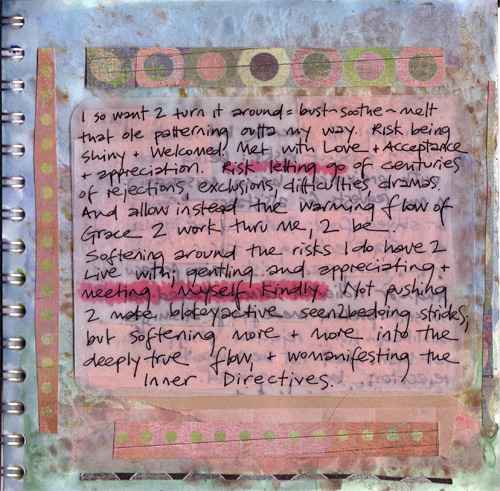 I so want 2 turn it around = bust ~ soothe ~ melt
that ole patterning outta my way. Risk being
shiny + welcomed, Met with Love + Acceptance
+ appreciation. Risk letting go of centuries
of rejections, exclusions, difficulties, dramas.
And allow instead the warming flow of
Grace 2 work thru me, 2 be.
Softening around the risks I do have 2
Live with; gentling and appreciating +
meeting myself kindly. Not pushing
2 make seen2bedoing strides,
but softening more + more into the
deeply true flow, + womanifesting the
Inner Directives.